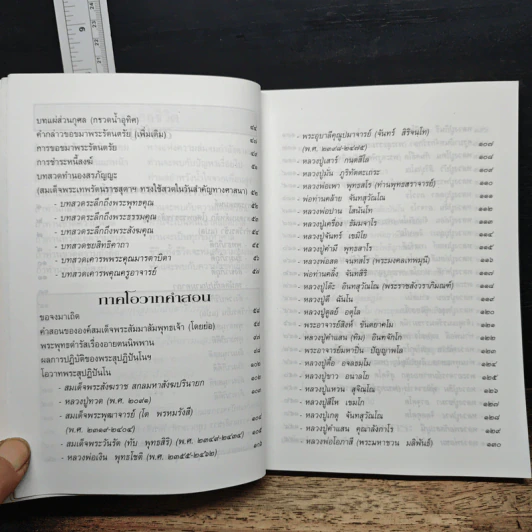 บทแผ่ส่วนกุศล (กรวดน้ำอุทิศ)
คำกล่าวขอขมาพระรัตนตรัย (เพิ่มเติม)
การขอขมาพระรัตนตรัย
การชำระหนี้สงฆ์
บทสวดทำนองสรภัญญะ
(สมเด็จพระเทพรัตนราชสุดาฯ ทรงใช้สวดในวันสำคัญทางศาสนา)
- บทสวดระลึกถึงพระพุทธคุณ
- บทสวดระลึกถึงพระธรรมคุณ
- บทสวดระลึกถึงพระสังฆคุณ
- บทสวดชยสิทธิคาถา
- บทสวดเคารพพระคุณมารดาบิดา
- บทสวดเคารพคุณครูอาจารย์
ภาคโอวาทคำสอน
ของจงมาเถิด
คำสอนขององค์สมเด็จพระสัมมาสัมพุทธเจ้า (โดยย่อ)
พระพุทธดำรัสเรื่องอายตนนิพพาน
ผลการปฏิบัติของพระสุปฏิปันโนฯ
โอวาทพระสุปฏิปันโน
- สมเด็จพระสังฆราช สกลมหาสังฆปรินายก
- หลวงปู่ทวด (พ.ศ. ๒๐๓๑)
- สมเด็จพระพุฒาจารย์ (โต พรหมรังสี) ๑๐๒
(พ.ศ. ๒๓๓๑-๒๔๐๔)
- สมเด็จพระวันรัต (ทับ พุทธสิริ) (พ.ศ. ๒๓๔๙-๒๔๓๔) ๑๐๔
- หลวงพ่อเงิน พุทธโชติ (พ.ศ. ๒๓๕๕-๒๔๖๒)
- พระอุบาลีคุณูปมาจารย์ (จันทร์ สิริจนฺโท)
(พ.ศ. ๒๓๙๙-๒๔๗๕) ๑๐๗
- หลวงปู่เสาร์ กนตสีโล ๑๐๘
- หลวงปู่มั่น ภูริทัตตะเถระ
- หลวงพ่อเภา พุทธสโร (ท่านพุทธสราจารย์)
- พ่อท่านคล้าย จันทสุวัณโณ
- หลวงพ่อปาน โสนันโท
- หลวงปู่เครื่อง ธัมมจาโร
- หลวงปู่จันทร์ เขมิโย
- หลวงปู่คำมี พุทธสาโร
- หลวงพ่อสด จนฺทสโร (พระมงคลเทพมุนี)
- พ่อท่านคลิ้ง จันทสิริ
- หลวงปู่โต๊ะ อินทสุวัณโณ (พระราชสังวราภิมณฑ์)
- หลวงปู่ดี ฉันโน
- หลวงปู่ดูลย์ อตุโล
- พระอาจารย์สิงห์ ขันตยาคโม
- หลวงปู่คำแสน (ทิม) อินฑจักโก
- พระอาจารย์มหาปิ่น ปัญญาพโล
- หลวงปู่ตื้อ อจลธมฺโม
- หลวงปู่ขาว อนาลโย
- หลวงปู่แหวน สุจิณโณ
- หลวงปู่สีโห เขมโก
- หลวงปู่เกตุ จันทสุวัณโณ
- หลวงปู่คำแสน คุณาลังกาโร ๑๒๙
- หลวงพ่อโอภาสี (พระมหาชวน มลิพันธ์) ๑๓๐